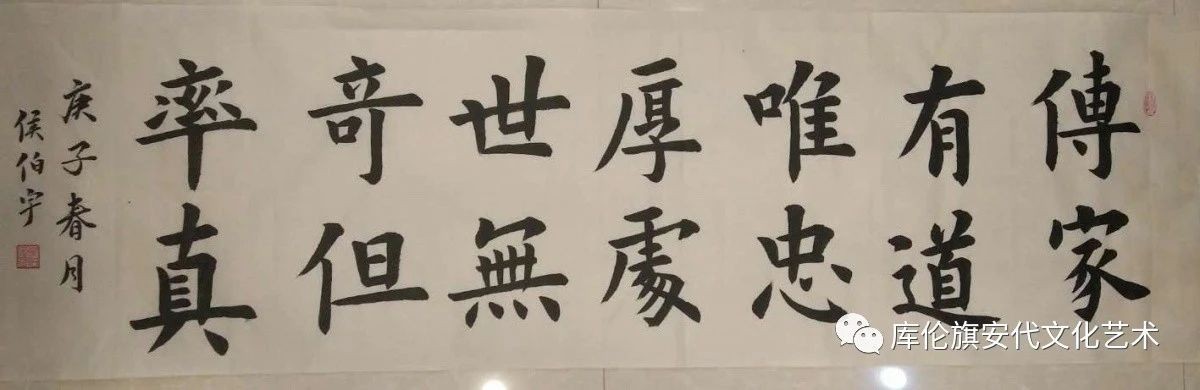 傳家
有道
唯忠
厚處
世無
奇但
率真
庚子春月
侯伯宇
库伦旗安代文化艺术